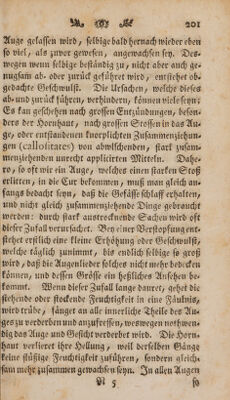 201
Auge gelassen wird, selbige bald hernach wieder eben
so viel, als zuvor gewesen, angewachsen sey. Des-
wegen wenn selbige beständig zu, nicht aber auch ge-
nugsam ab- oder zurück geführet wird, entstehet ob-
gedachte Geschwulst. Die Ursachen, welche dieses
ab- und zurück führen, verhindern, können viele seyn;
Es kan geschehen nach grossen Entzündungen, beson-
ders der Hornhaut, nach grossen Stossen in das Au-
ge, oder entstandenen knorplichten Zusammenziehun-
gen (callositates) von abwischenden, stark zusam-
menziehenden unrecht applicirten Mitteln. Dahe-
ro, so oft wir ein Auge, welches einen starken Stoß
erlitten, in die Cur bekommen, muß man gleich an-
fangs bedacht seyn, daß die Gefässe schlaff erhalten,
und nicht gleich zusammenziehende Dinge gebraucht
werden: durch stark austrocknende Sachen wird oft
dieser Zufall verursachet. Bey einer Verstopfung ent-
stehet erstlich eine kleine Erhöhung oder Geschwulst,
welche täglich zunimmt, bis endlich selbige so groß
wird, daß die Augenlieder solches nicht mehr bedecken
können, und dessen Grösse ein heßliches Ansehen be-
kommt. Wenn dieser Zufall lange dauret, gehet die
stehende oder stockende Feuchtigkeit in eine Fäulnis,
wird trübe, fänget an alle innerliche Theile des Au-
ges zu verderben und anzufressen, weswegen nothwen-
dig das Auge und Gesicht verderbt wird. Die Horn-
haut verlieret ihre Hellung, weil derselben Gänge
keine flüßige Feuchtigkeit zuführen, sondern gleich-
sam mehr zusammen gewachsen seyn. In allen Augen
N 5 so